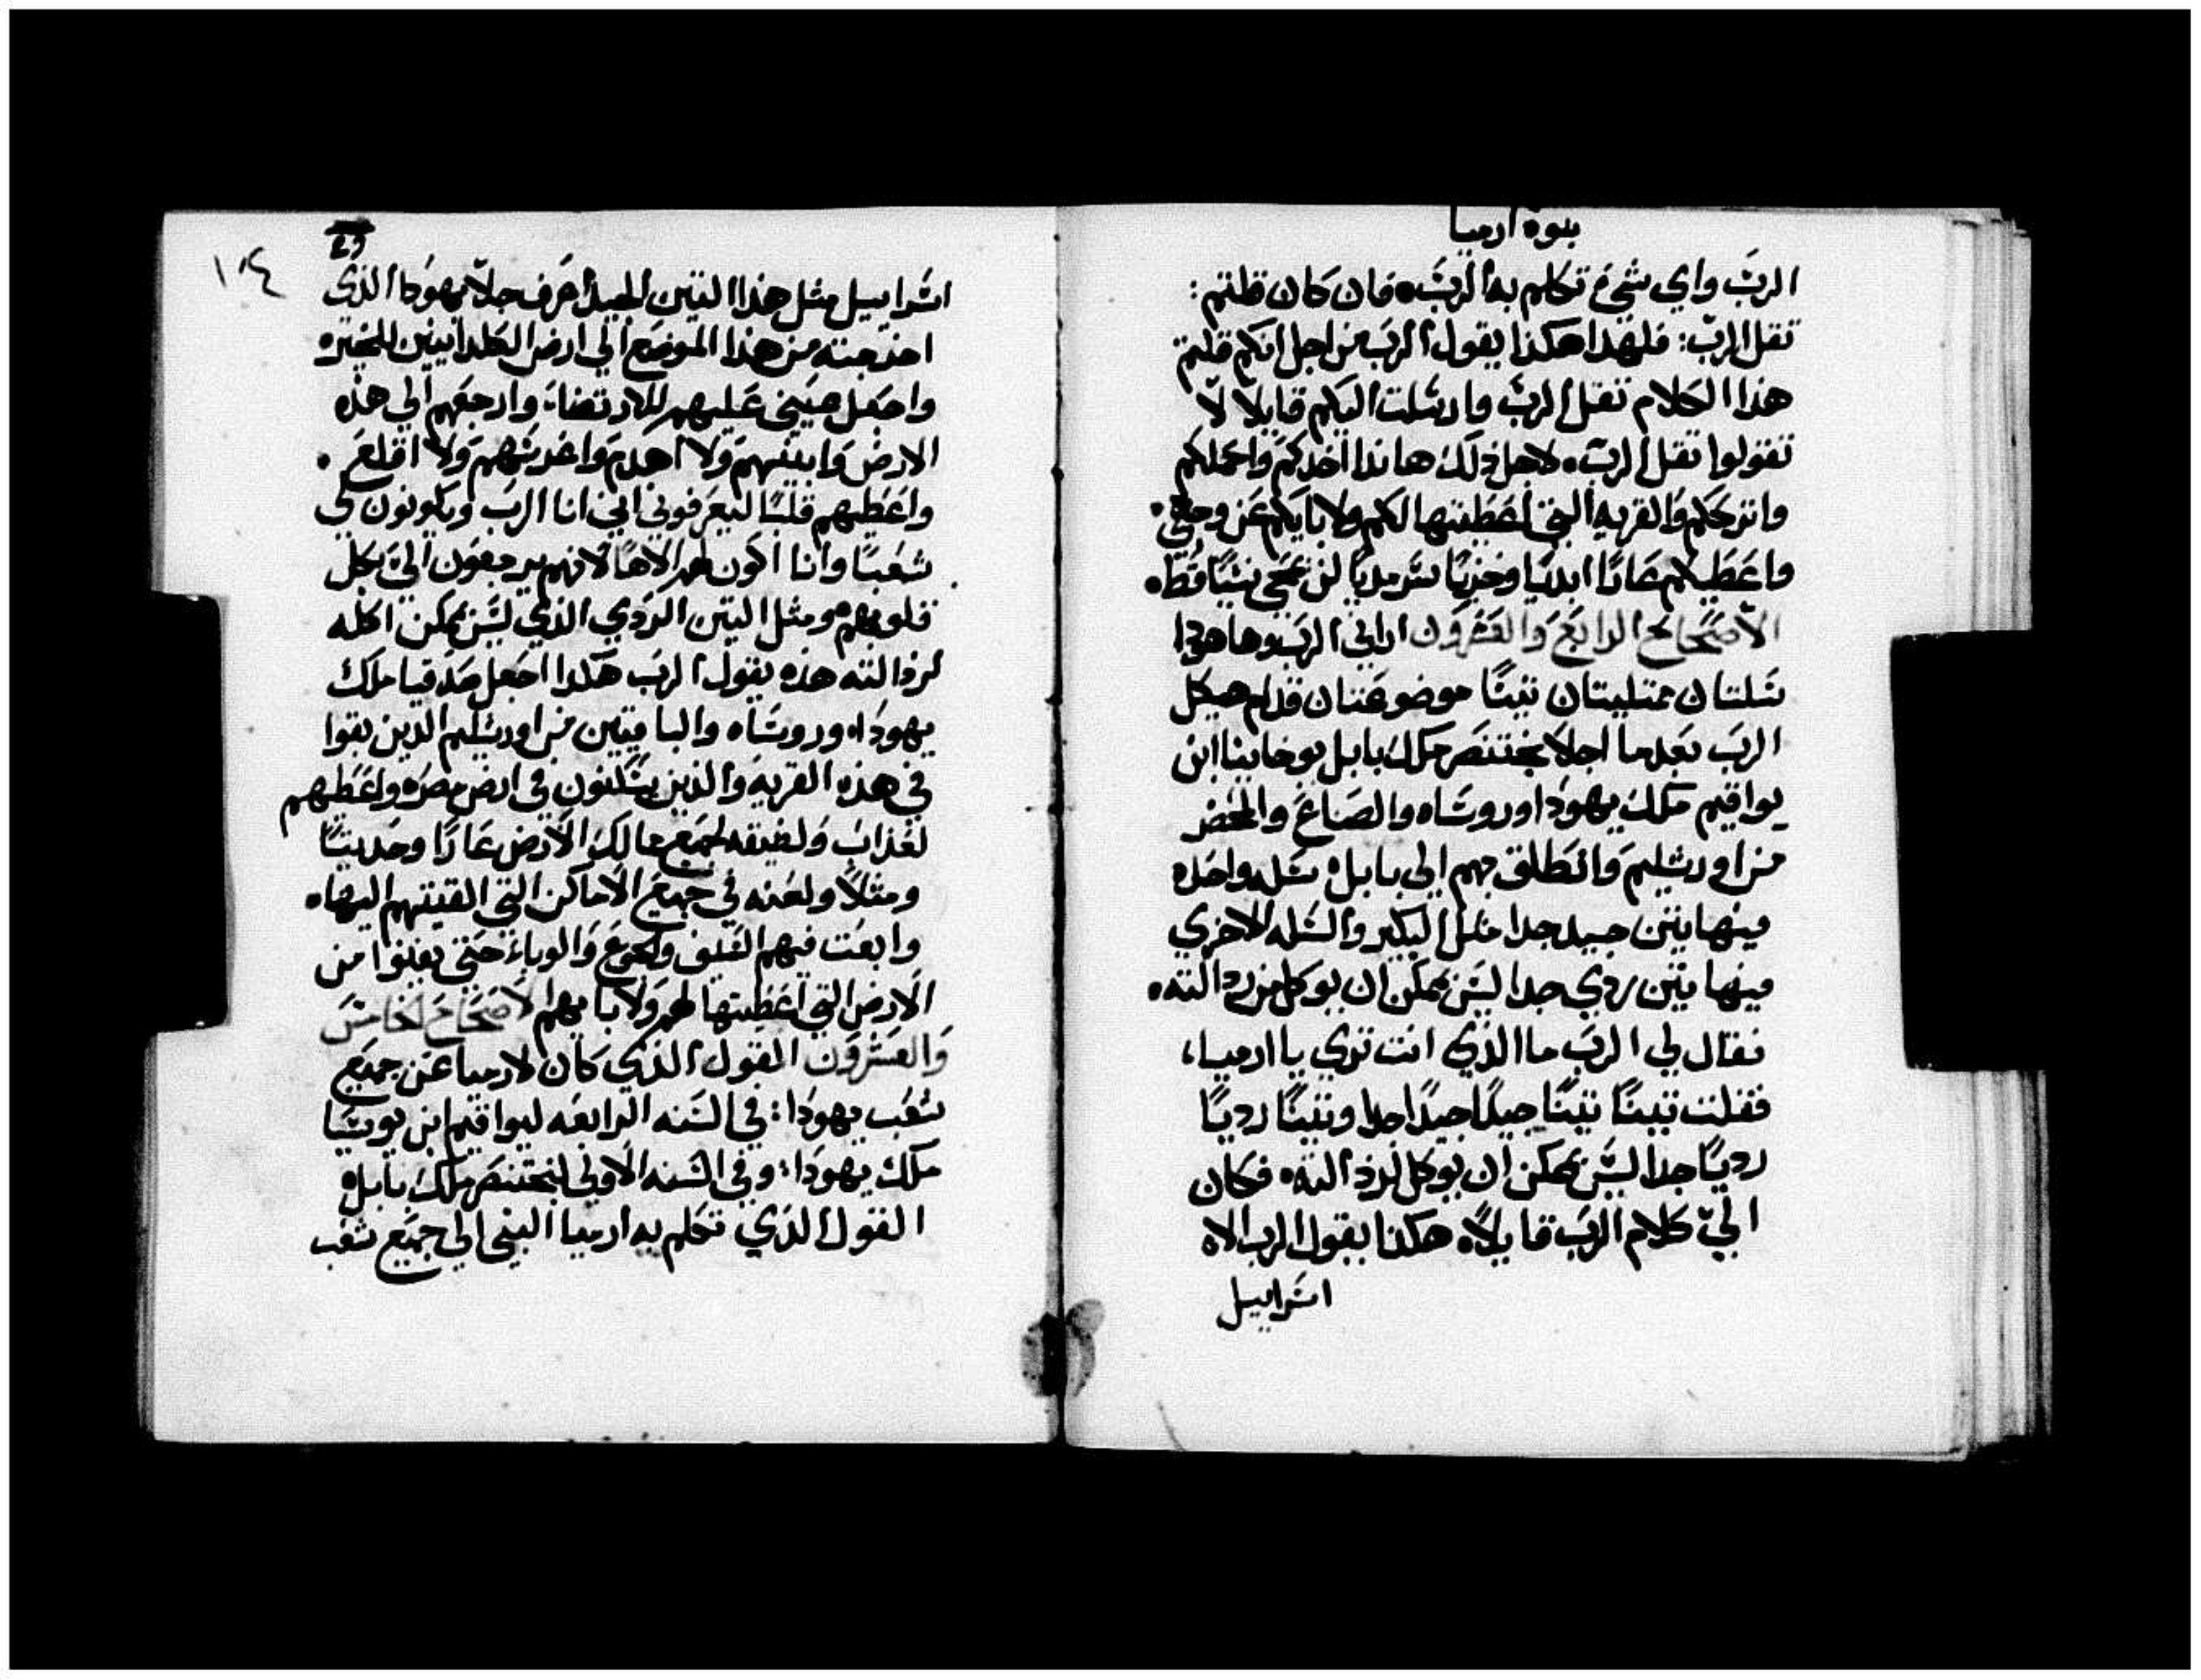 نبوة ارميا
الربّ واي شيء تكلم به الربّ. فان كان قلتم:
ثقل الربّ: فلهذا هكذا يقول الرب من اجل انكم قلتم
هذا الكلام ثقل الربّ وارسلت اليكم قايلاً لا
تقولوا ثقل الربّ. لاجل ذلك هانذا اخدكم واحملكم
واترككم والقريه التي اعطيتها لكم ولابايكم عن وجهي.
واعطيكم عارًا ابديًا وخزيًا سرمديًا لن يمحي نسيًا قط.
الاصحاح الرابع والعشرون اراني الرب وها هوذا
سلتان ممتليتان تينًا موضوعتان قدام هيكل
الرب بعدما اجلا بختنصر ملك بابل يوخانيا ابن
يواقيم ملك يهودا وروساه والصناع والمحضر
من اورشليم وانطلق بهم الي بابل. سله واحده
فيها تين جيد جدا مثل البكير والسله الاخري
فيها تين ردي جدا ليس يمكن ان يوكل من رذالته.
فقال لي الرب ما الذي انت تري يا ارميا،
فقلت تينًا تينًا جيدًا جيدًا جدا وتينًا رديًا
رديًا جدا ليس يمكن ان يوكل لرذالته. فكان
اليّ كلام الرب قايلاً. هكذا يقول الرب الاه
اسراييل
٢٩
١٠٤
اسراييل مثل هذا التين الجيد اعرف جلا يهودا الذي
اخرجته من هذا الموضع الي ارض الكلدانيين للخيره
واجعل عيني عليهم للارتضاء وارجعهم الي هذه
الارض وابنيهم ولا اهدم واغرسهم ولا اقلع.
واعطيهم قلبًا ليعرفوني اني انا الرب ويكونون لي
شعبًا وانا اكون لهم الاهًا لانهم يرجعون اليّ بكل
قلوبهم ومثل التين الردي الذي ليس يمكن اكله
لرذالته هذه يقول الرب هكذا اجعل صدقيا ملك
يهودا. وروساه والباقيين من اورشليم الذين بقوا
في هذه القريه والذين يسكنون في ارض مصر. واعطيهم
لعذاب ولضيقه لجميع ممالك الارض عارًا وحديثًا
ومثلاً ولعنه في جميع الاماكن التي القيتهم اليها.
وابعث فيهم السيف والجوع والوباء حتي يفنوا من
الارض التي اعطيتها لهم ولابايهم الاصحاح الخامس
والعشرون القول الذي كان لارميا عن جميع
شعب يهودا: في السنه الرابعه ليواقيم ابن يوشيا
ملك يهودا: وفي السنه الاولي لبختنصر ملك بابل.
القول الذي تكلم به ارميا النبي الي جميع شعب